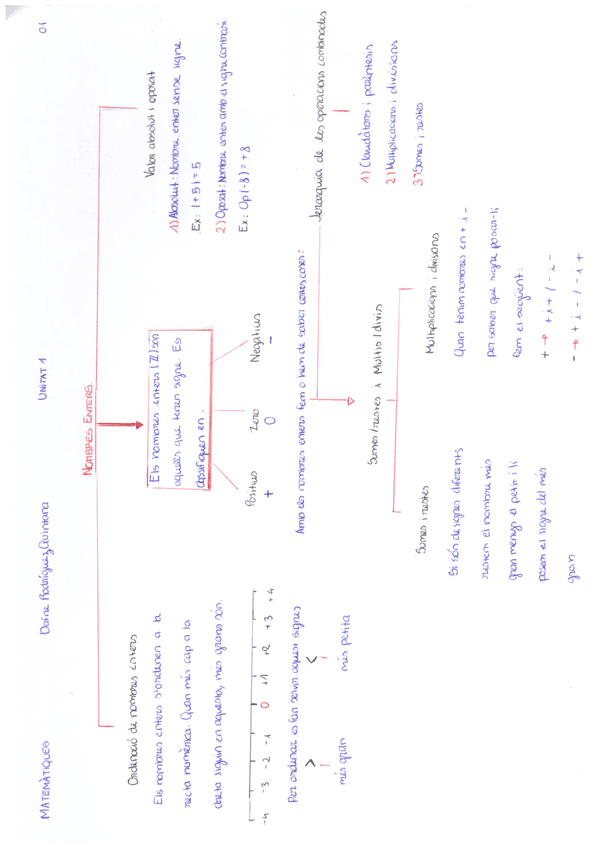 MATEMÀTIQUES Dafne Rodríguez Quintana UNITAT 1 01
NOMBRES ENTERS
Ordenació de nombres enters
Els nombres enters s'ordenen a la
recta numèrica. Quan més cap a la
dreta siguin en aquesta, més grans són.
-4 -3 -2 -1 0 +1 +2 +3 +4
Per ordenar es fan servir aquest signes
> <
més gran més petita
Els nombres enters (Z) són
aquells que tenen signe. Es
classifiquen en:
Positius Zero Negatius
+ 0 -
Valor absolut i oposat
1) Absolut: Nombre enter sense signe.
Ex: |+5| = 5
2) Oposat: Nombre enter amb el signe contrari
Ex: Op(-8) = +8
Amb els nombres enters fem o hem de saber certes coses:
Jerarquia de les operacions combinades
1) Claudàtors i parèntesis
2) Multiplicacions i divisions
3) Sumes i restes
Sumes/restes i Multip/divis
Sumes i restes
Si són de signes diferents
restem el nombre més
gran menys el petit i li
posem el signe del més
gran
Multiplicacions i divisions
Quan tenim nombres en + i -
per saber quin signe posar-li
fem el següent:
+ → + i + / - i -
- → + i - / - i +